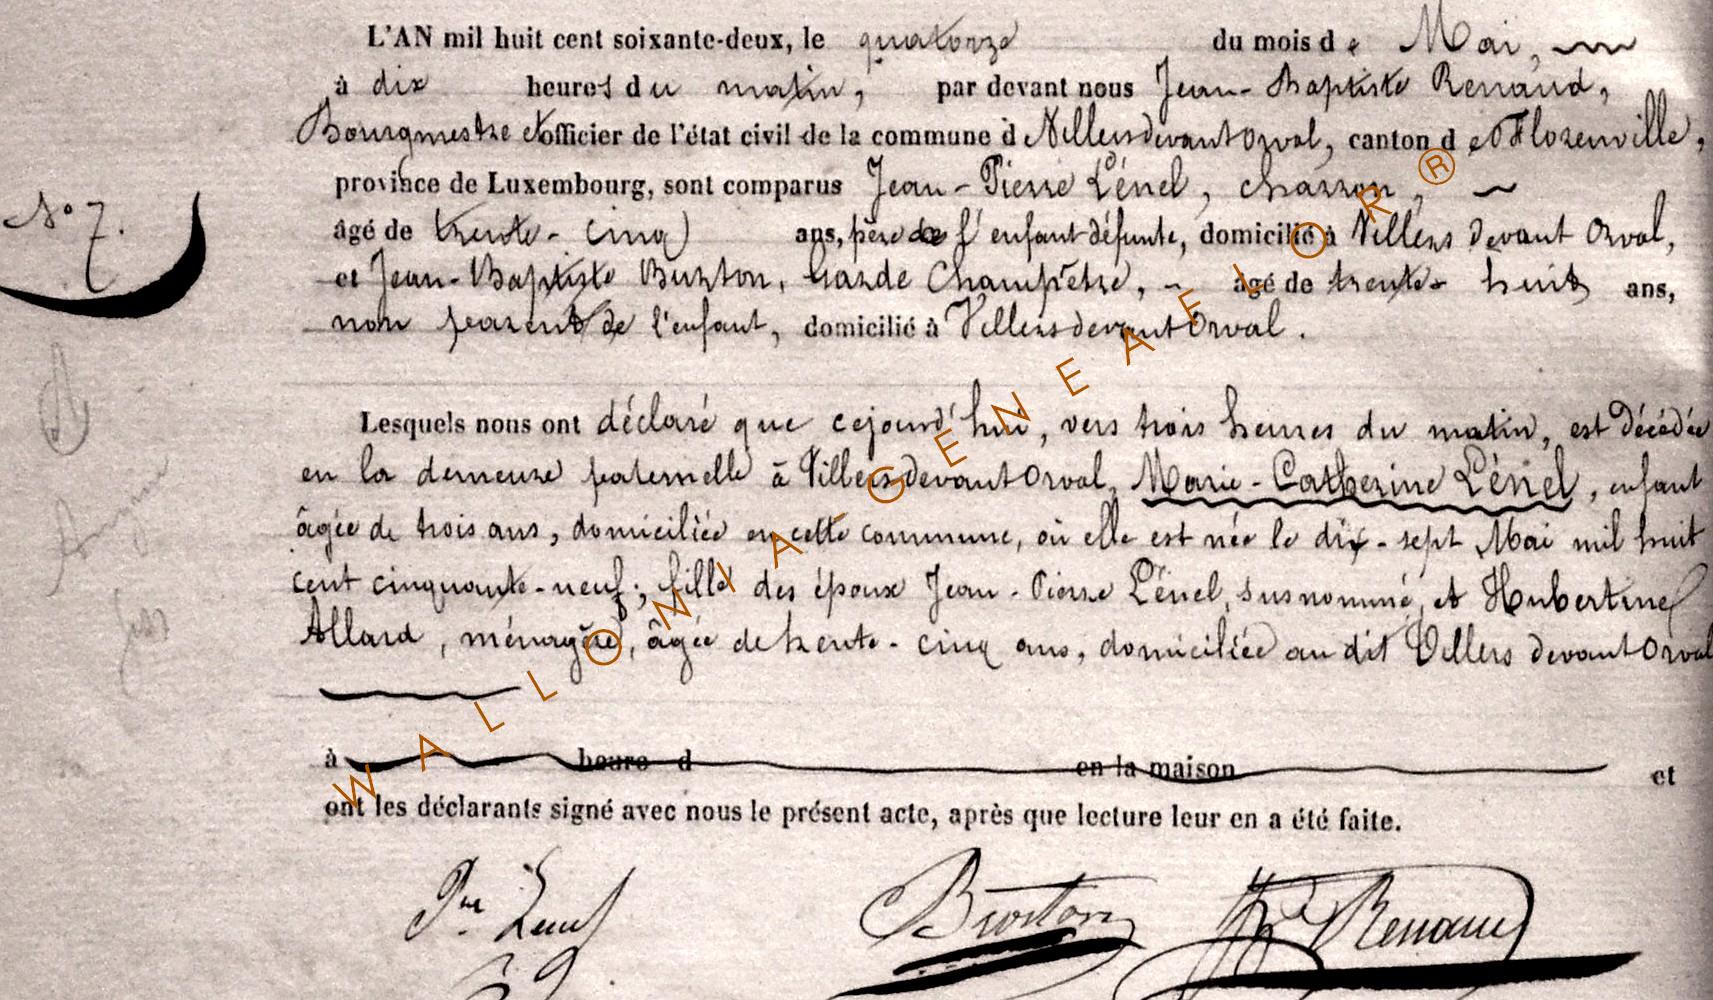 L'AN mil huit cent soixante-deux, le quatorze du mois de Mai,
à dix heures du matin, par devant nous Jean-Baptiste Renaud,
Bourgmestre et officier de l'état civil de la commune d Villersdevant Orval, canton de Florenville,
province de Luxembourg, sont comparus Jean-Pierre Lénel, charron,
N° 7.
âgé de trente-cinq ans, père de l'enfant défunte, domicilié à Villers devant Orval,
et Jean-Baptiste Burton, Garde Champêtre, âgé de trente-huit ans,
non parent de l'enfant, domicilié à Villersdevant Orval.
Lesquels nous ont déclaré que cejourd'hui, vers trois heures du matin, est décédée
en la demeure paternelle à Villersdevant Orval, Marie-Catherine Lénel, enfant
âgée de trois ans, domiciliée en cette commune, où elle est née le dix-sept Mai mil huit
cent cinquante-neuf; fille des époux Jean-Pierre Lénel, susnommé, et Hubertine
Allard, ménagère, âgée de trente-cinq ans, domiciliée au dit Villers devant Orval
à heure d en la maison et
ont les déclarants signé avec nous le présent acte, après que lecture leur en a été faite.
Pre Lenel Burton JB Renaud
WALLONIA-GENEAFLOR®